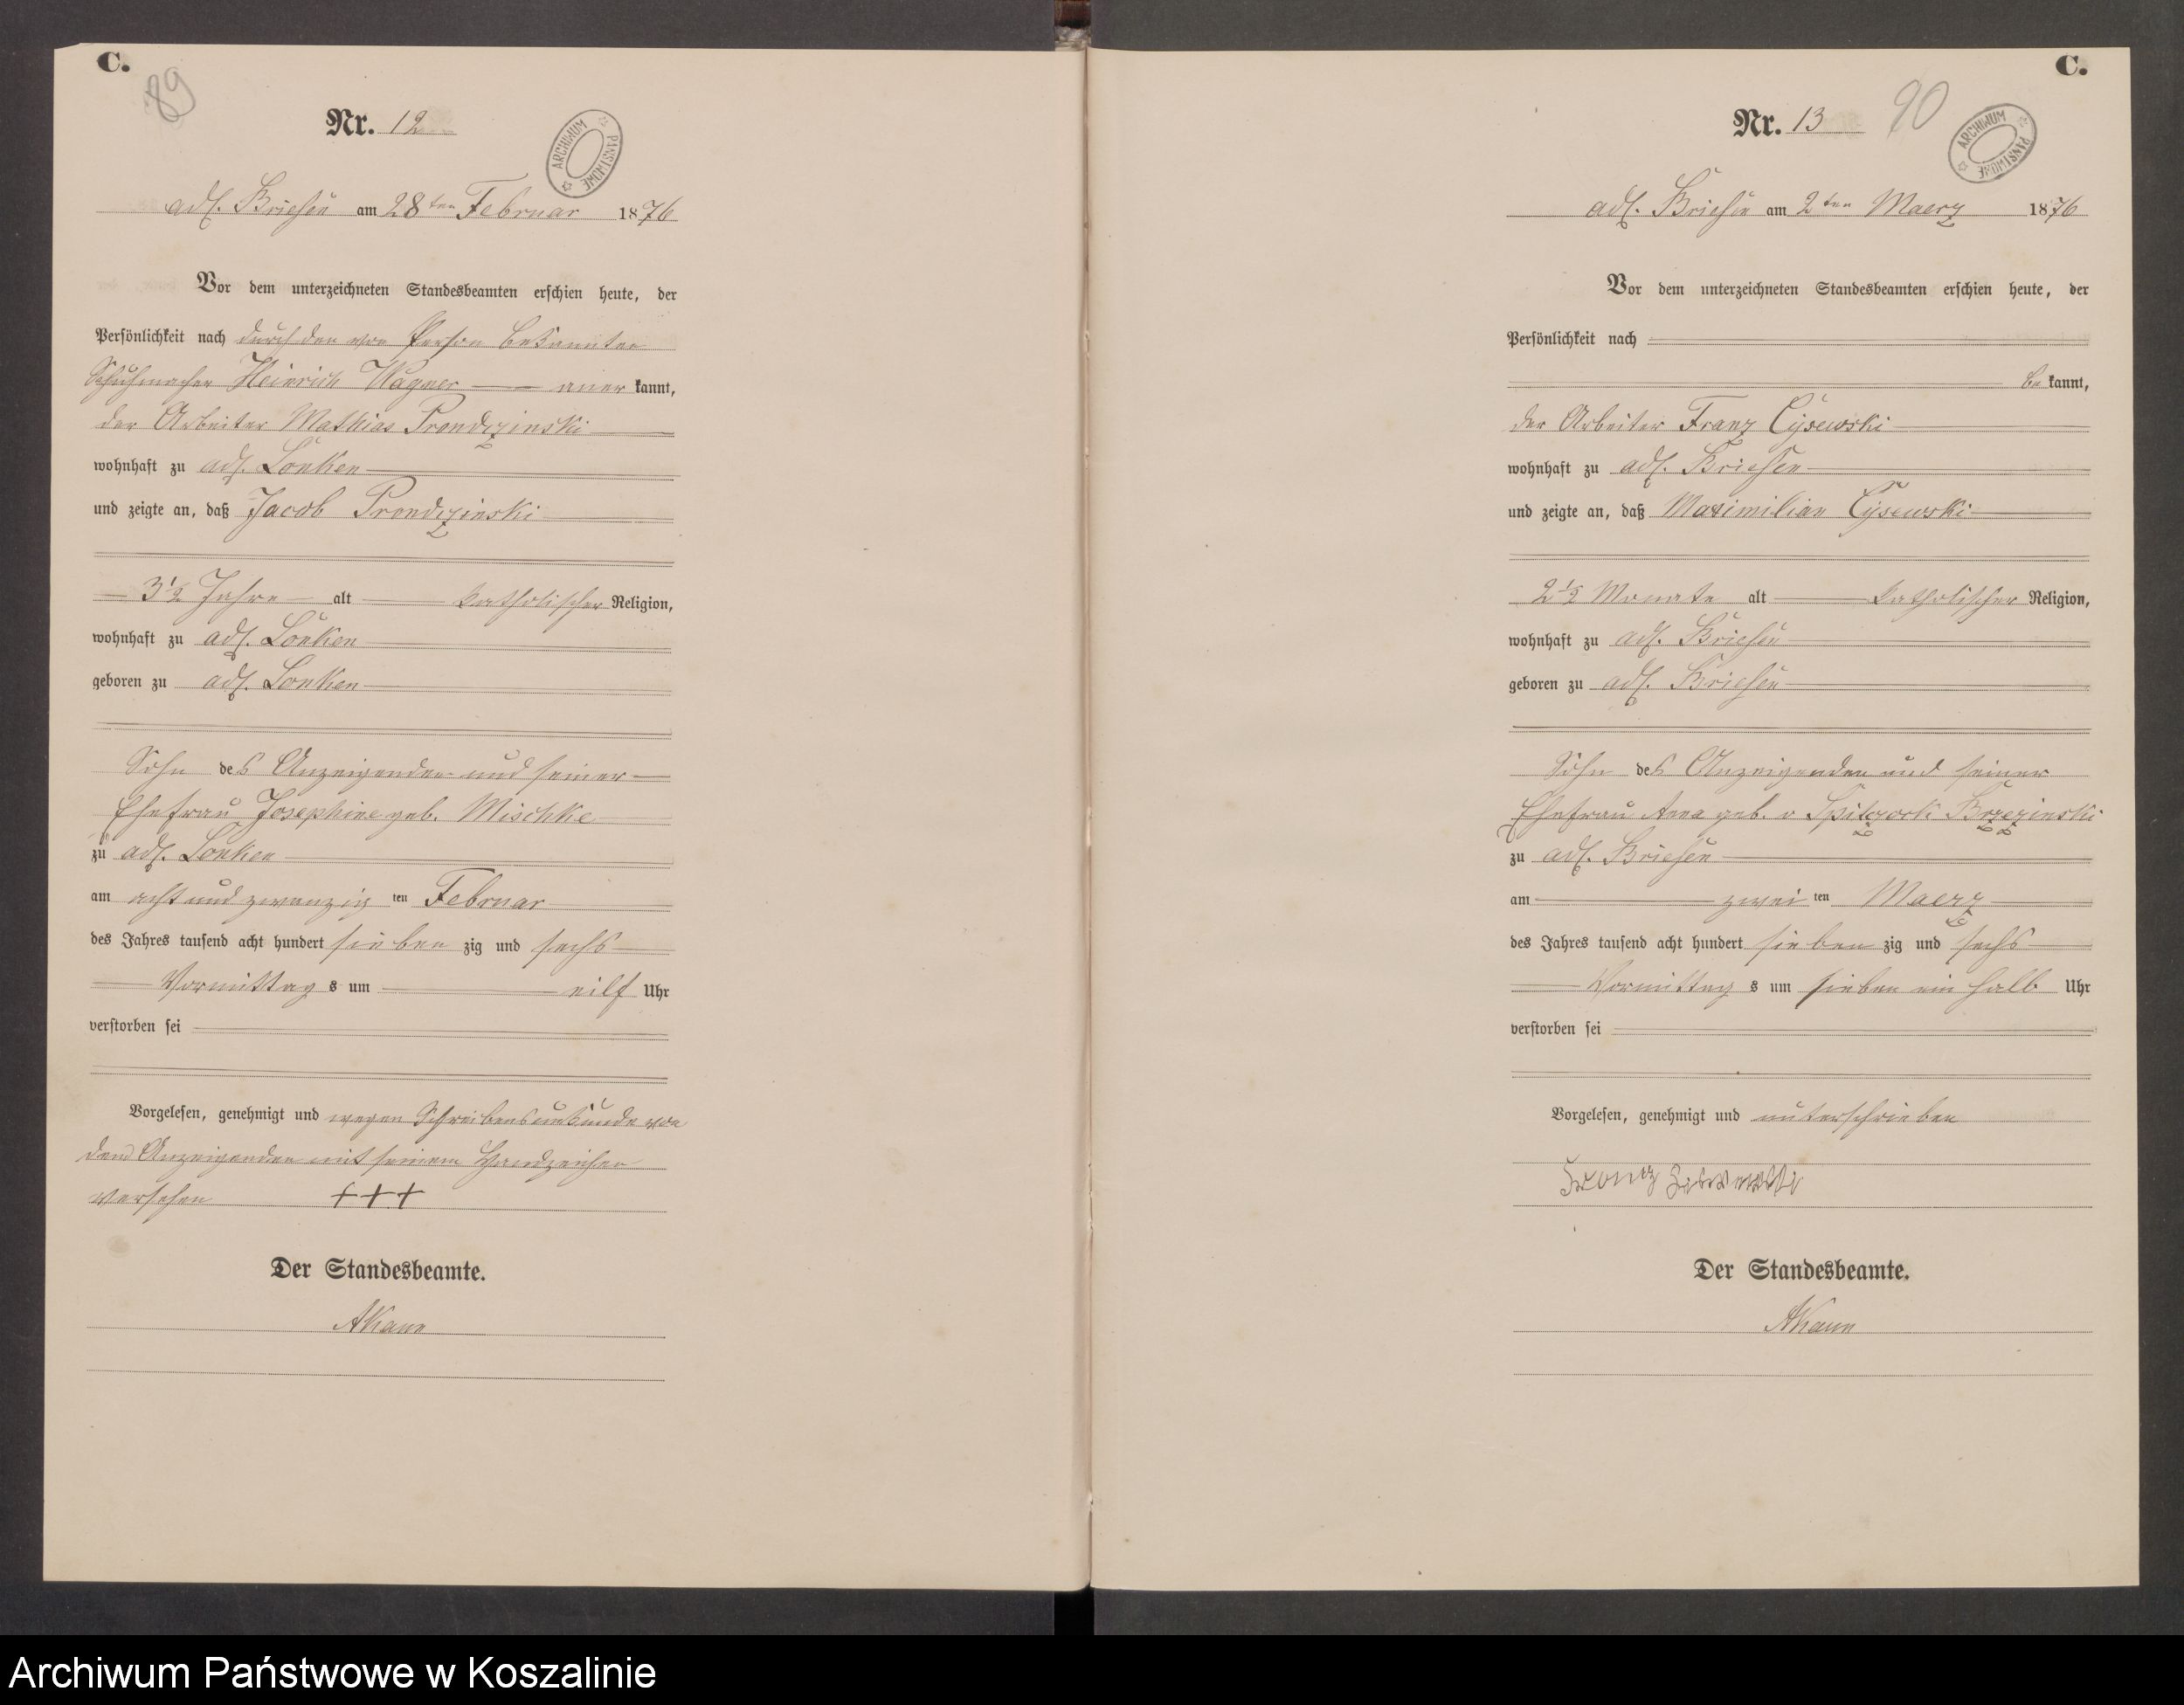 C.
89
Nr. 12
ARCHIWUM PAŃSTWOWE
adl. Briesen am 28ten Februar 1876
Vor dem unterzeichneten Standesbeamten erschien heute, der
Persönlichkeit nach durch den von Person bekannten
Schuhmacher Heinrich Wagner aner kannt,
der Arbeiter Mathias Prondzinski
wohnhaft zu adl. Lonken
und zeigte an, daß Jacob Prondzinski
3½ Jahre alt katholischer Religion,
wohnhaft zu adl. Lonken
geboren zu adl. Lonken
Sohn des Anzeigenden und seiner
Ehefrau Josephine geb. Mischke
zu adl. Lonken
am acht und zwanzig ten Februar
des Jahres tausend acht hundert sieben zig und sechs
Vormittag s um eilf Uhr
verstorben sei
Vorgelesen, genehmigt und wegen Schreibensunkunde von
dem Anzeigenden mit seinem Handzeichen
versehen +++
Der Standesbeamte.
C.
90
Nr. 13
ARCHIWUM PAŃSTWOWE
adl. Briesen am 2ten Maerz 1876
Vor dem unterzeichneten Standesbeamten erschien heute, der
Persönlichkeit nach
be kannt,
der Arbeiter Franz Cysewski
wohnhaft zu adl. Briesen
und zeigte an, daß Maximilian Cysewski
2½ Monate alt katholischer Religion,
wohnhaft zu adl. Briesen
geboren zu adl. Briesen
Sohn des Anzeigenden und seiner
Ehefrau Anna geb. v Brzezinski
zu adl. Briesen
am zwei ten Maerz
des Jahres tausend acht hundert sieben zig und sechs
Vormittag s um sieben ein halb Uhr
verstorben sei
Vorgelesen, genehmigt und unterschrieben
Der Standesbeamte.
Archiwum Państwowe w Koszalinie